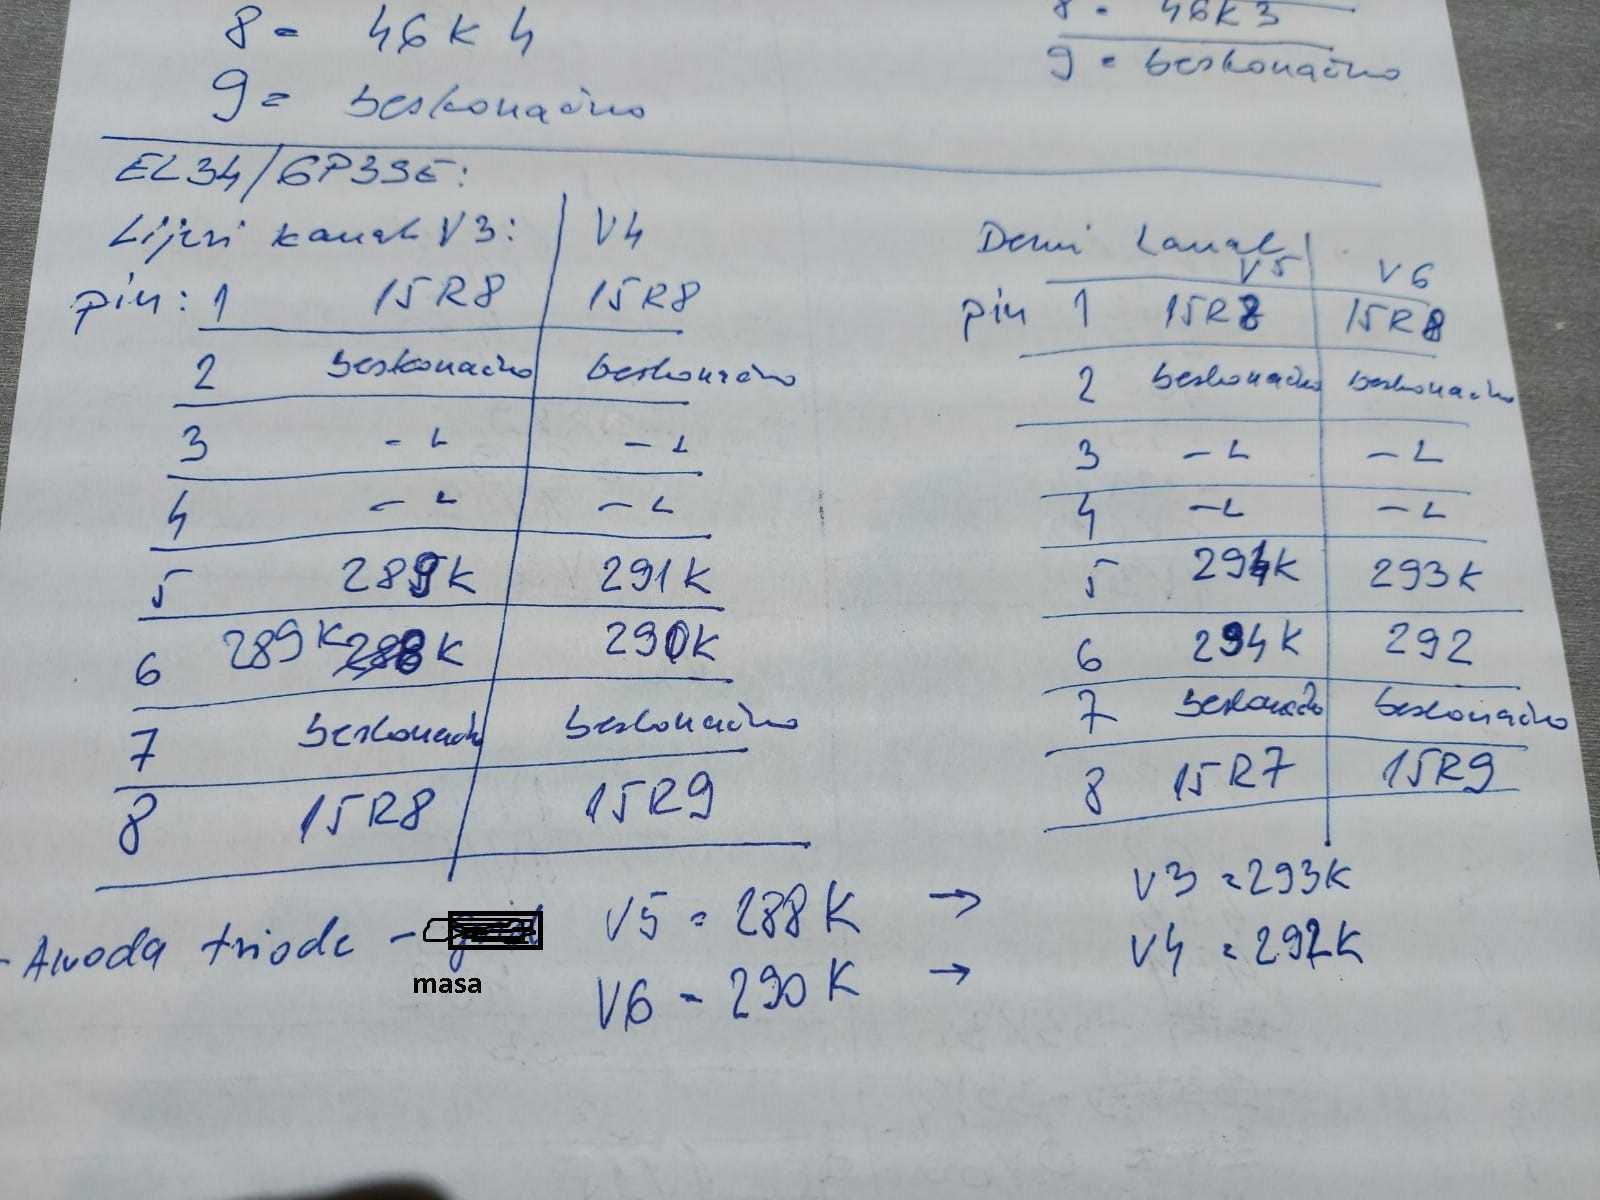 8 = 46K4
9 = beskonačno
8 = 46K3
9 = beskonačno
EL34/6P3SE:
Lijevi kanal V3: V4
pin: 1 15R8 15R8
2 beskonačno beskonačno
3 -L -L
4 -L -L
5 289K 291K
6 289K K 290K
7 beskonačn beskonačno
8 15R8 15R9
Desni kanal
V5 V6
pin 1 15R8 15R8
2 beskonačno beskonačno
3 -L -L
4 -L -L
5 294K 293K
6 294K 292
7 beskonačno beskonačno
8 15R7 15R9
- Anoda triode - V5 = 288K → V3 = 293K
masa
V6 - 290K → V4 = 292K